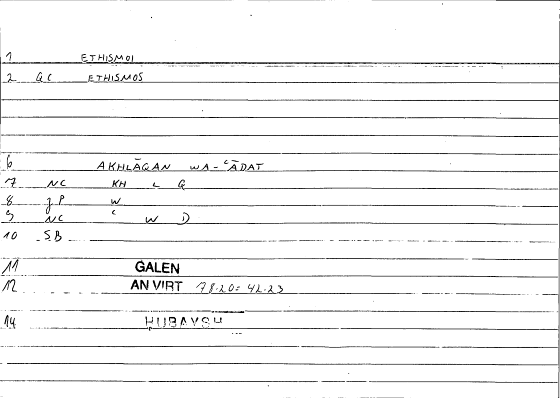 1 ETHISMOI
2 QC ETHISMOS
6 AKHLĀQAN WA-ʿĀDAT
7 NC KH L Q
8 JP W
9 NC ʿ W D
10 SB
11 GALEN
12 AN VIRT 78.20= 42.23
14 HUBAYSH